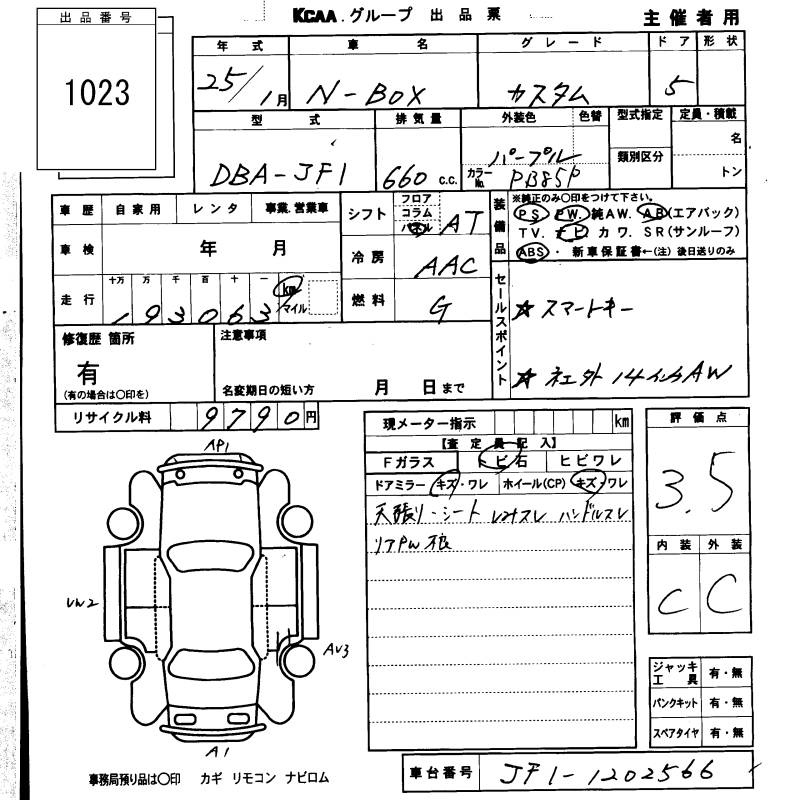 出品番号
1023
KCAA.グループ 出品票
主催者用
年式 車名 グレード ドア 形状
25/1月 N-BOX カスタム 5
型式 排気量 外装色 色替 型式指定 定員・積載
DBA-JF1 660 c.c. パープル 名
カラーNo. PB85P 類別区分 トン
車歴 自家用 レンタ 事業.営業車
シフト フロア コラム パネル AT
装備品 ※純正のみ〇印をつけて下さい。
PS PW. 純AW. AB(エアバック)
TV. ナビ カワ. SR(サンルーフ)
ABS・ 新車保証書←(注)後日送りのみ
車検 年 月
冷房 AAC
走行 十万 万 千 百 十 一 km マイル
193063
燃料 G
セールスポイント
☆ スマートキー
☆ 社外14インチAW
修復歴 箇所
有
(有の場合は〇印を)
注意事項
名変期日の短い方 月 日まで
リサイクル料 9790円
現メーター指示 km
【査定員記入】
Fガラス トビ石 ヒビワレ
ドアミラー キズ・ワレ ホイール(CP) キズ・ワレ
天張り・シート ハンドルスレ
リアPW
評価点
3.5
内装 外装
C C
AP1
UW2
AU3
A1
ジャッキ工具 有・無
パンクキット 有・無
スペアタイヤ 有・無
事務局預り品は〇印 カギ リモコン ナビロム
車台番号 JF1-1202566